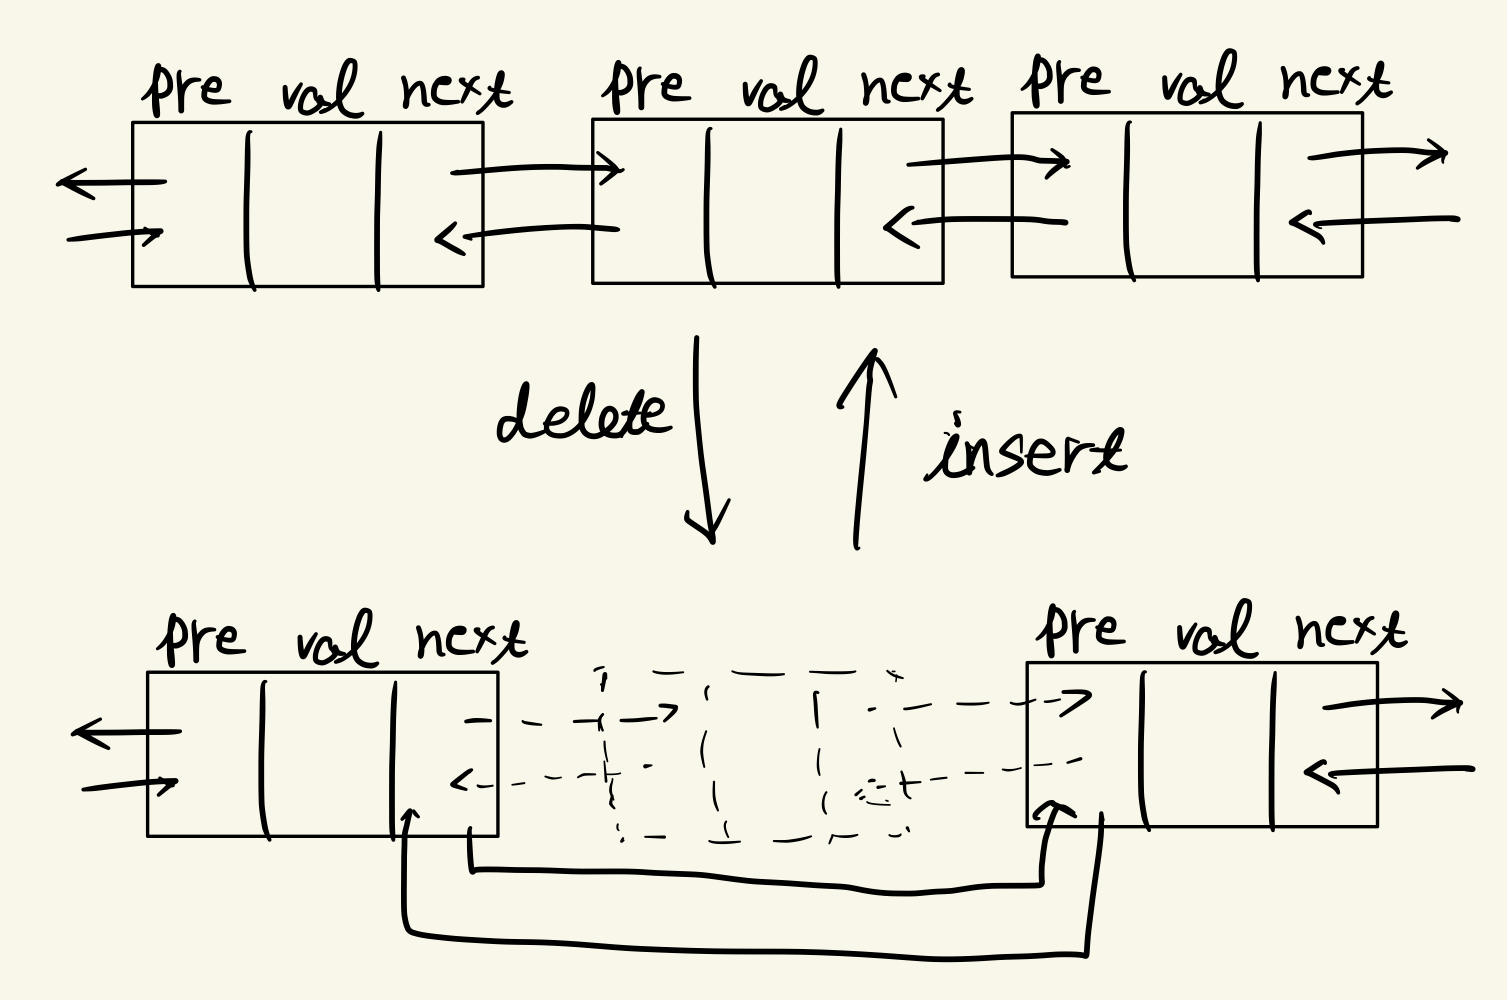 pre val next pre val next pre val next
delete
insert
pre val next pre val next